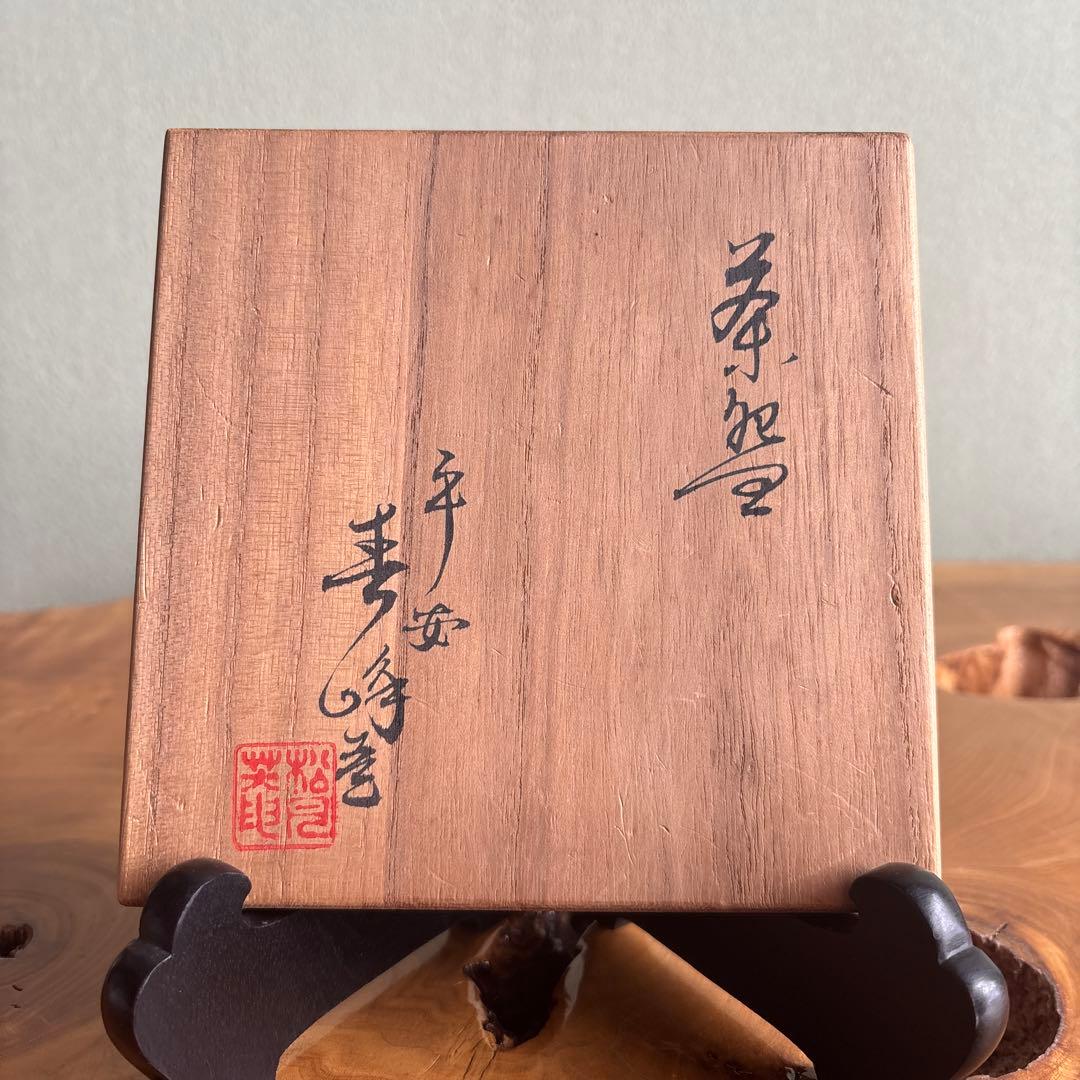 茶盌
平安
春峰造